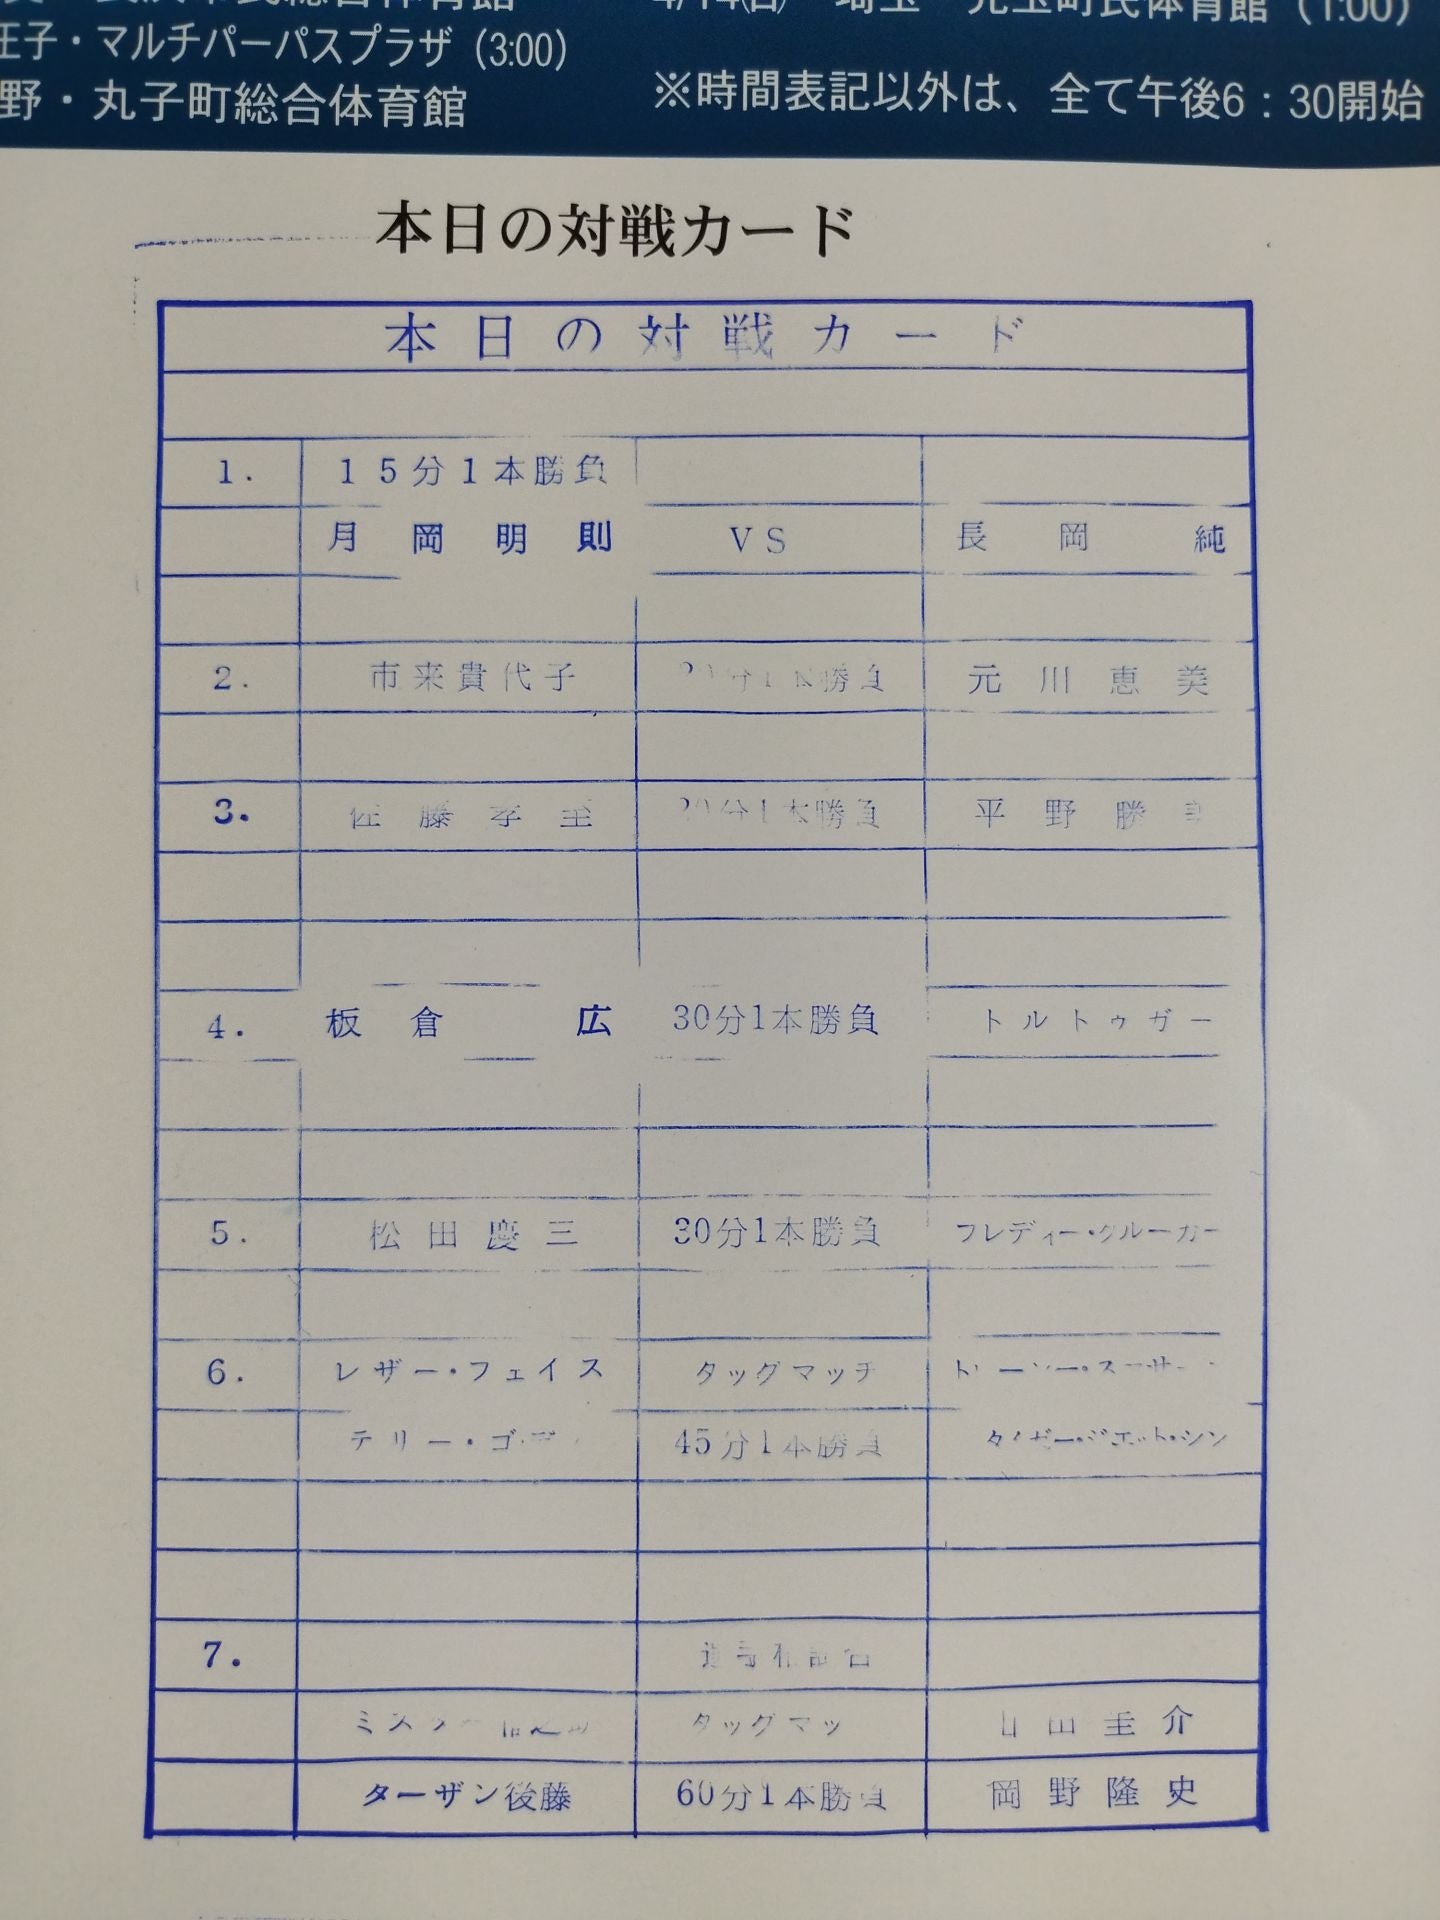 4/14(日) 埼玉 児玉町民体育館（1:00）
王子・マルチパーパスプラザ（3:00）
野・丸子町総合体育館
※時間表記以外は、全て午後6：30開始
本日の対戦カード
本日の対戦カード
1. 15分1本勝負
月岡明則 VS 長岡 純
2. 市来貴代子 20分1本勝負 元川恵美
3. 佐藤孝至 20分1本勝負 平野勝
4. 板倉 広 30分1本勝負 トルトゥガー
5. 松田慶三 30分1本勝負 フレディー・クルーガー
6. レザー・フェイス タッグマッチ
テリー・ゴディ 45分1本勝負 タイガー・ジェット・シン
7.
タッグマッ 圭介
ターザン後藤 60分1本勝負 岡野隆史